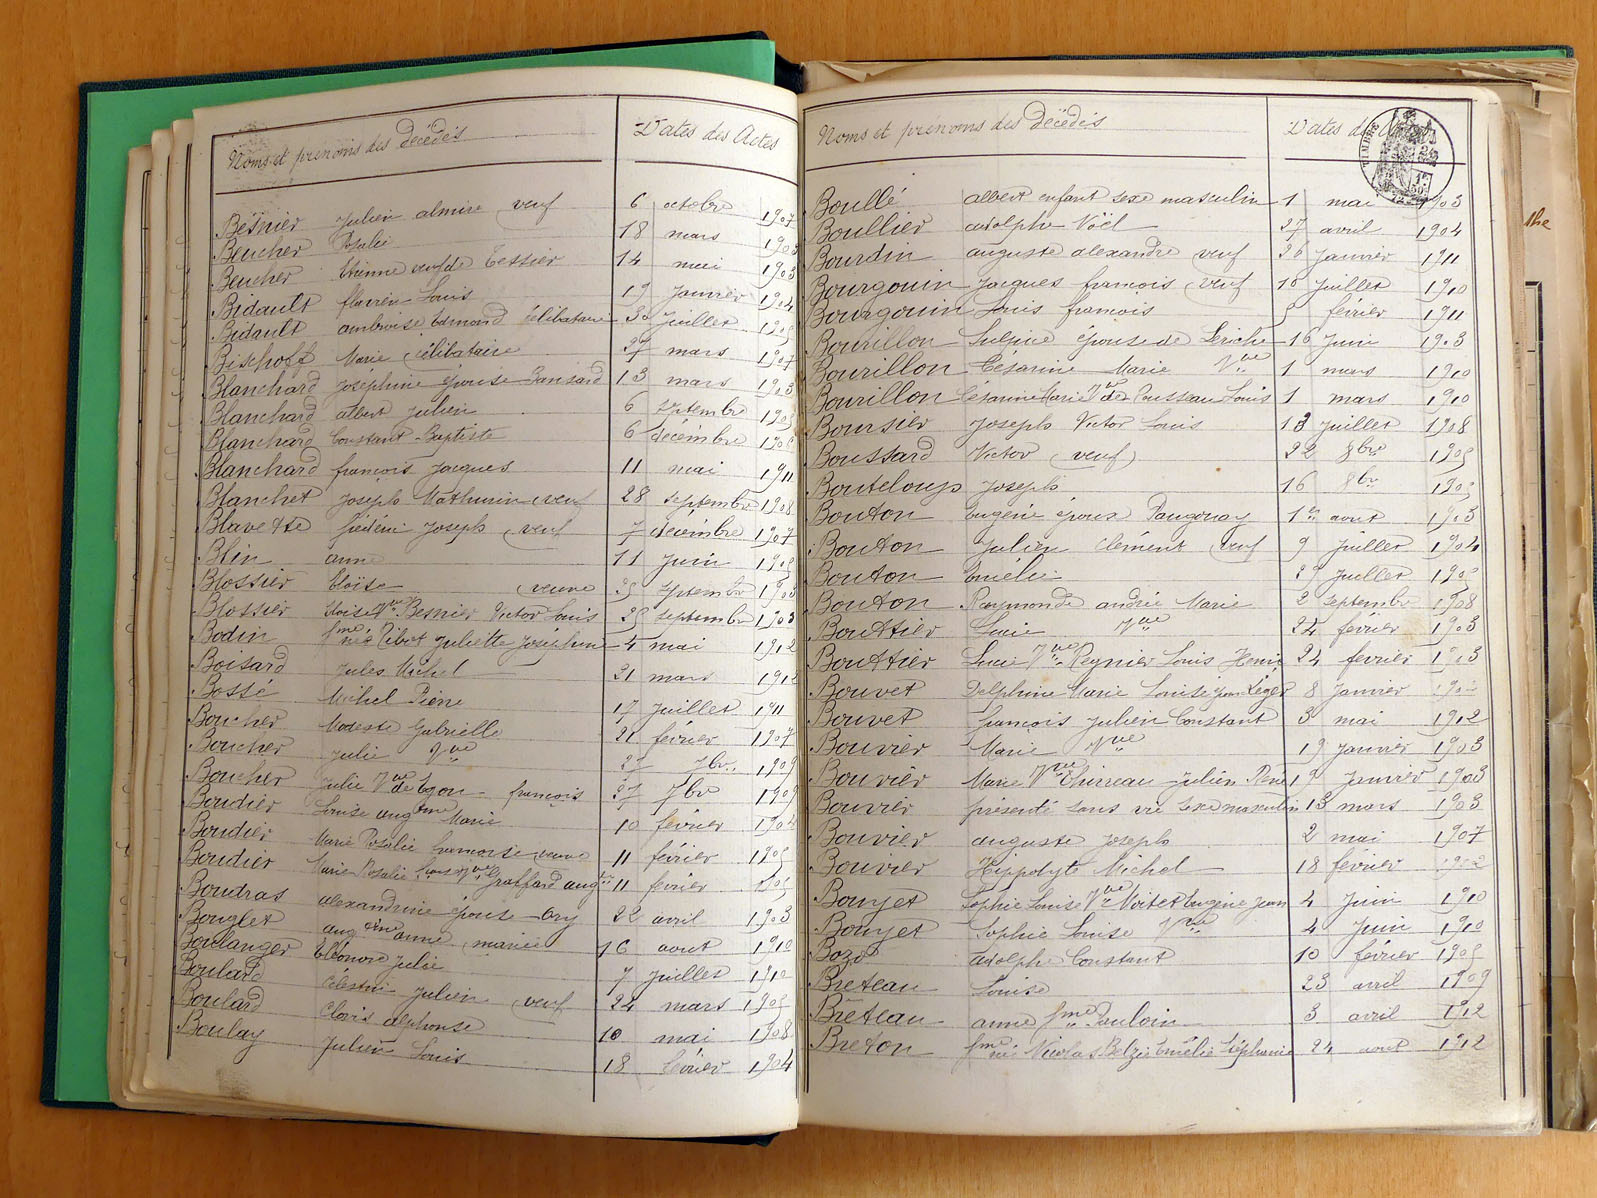 Noms et prénoms des Décédés Dates des Actes
Besnier Julien almire veuf 6 octobre 1907
Beucher Rosalie 18 mars 1903
Beucher Etienne veuf de Tessier 14 mai 1903
Bidault Louis 19 Janvier 1904
Bidault ambroise Edmond célibataire Juillet
Bischoff Marie célibataire 27 mars 1907
Blanchard Joséphine épouse 13 mars 1903
Blanchard albert Julien 6 septembre
Blanchard Constant Baptiste 6 décembre
Blanchard françois Jacques 11 mai 1911
Blanchet Joseph Mathurin veuf 28 septembre 1908
Blavette Joseph veuf 7 décembre 1907
Blin anne 11 Juin
Blossier Eloïse veuve septembre 1903
Blossier Eloise Vve Besnier Victor Louis septembre 1903
Bodin fme née Ribot Juliette Joséphine 4 mai 1912
Boisard Jules Michel 21 mars 1912
Bossé Michel Pierre 17 Juillet 1911
Boucher Modeste Gabrielle 21 février 1907
Boucher Julie Vve 27 7bre 1909
Boucher Julie Vve de françois 27 7bre 1909
Boudier Louise augtine Marie 10 février 1904
Boudier Marie Rosalie veuve 11 février 1905
Boudier Marie Rosalie Vve Graffard 11 fevrier 1905
Boudras alexandrine épouse Ory 22 avril 1903
Bouglet augtine anne mariée 16 aout 1910
Boulanger Eléonore Julie 7 Juillet 1910
Boulard Célestin Julien veuf 24 mars 1905
Boulard Clovis alphonse 10 mai 1908
Boulay Julien Louis 18 février 1904
Noms et prénoms des Décédés Dates des Actes
TIMBRE
Boullé albert enfant sexe masculin 1 mai 1903
Boullier adolphe Noël 27 avril 1904
Bourdin auguste alexandre veuf 26 Janvier 1911
Bourgouin Jacques francois veuf 10 Juillet 1910
Bourgouin Louis francois 5 février 1911
Bourillon épouse de Leriche 16 Juin 1903
Bourillon Césarine Marie Vve 1 mars 1910
Bourillon Césarine Marie Vve de Rousseau Louis 1 mars 1910
Boursier Joseph Victor Louis 13 Juillet 1908
Boussard Victor (veuf) 22 8bre 1905
Bouteloup Joseph 16 8bre 1905
Bouton Eugénie épouse 1er aout 1903
Bouton Julien Clément veuf 9 Juillet 1904
Bouton Emélie 29 Juillet 1905
Bouton Raymonde andrée Marie 2 septembre 1908
Bouttier Lucie Vve 24 février 1903
Bouttier Lucie Vve Reynier Louis Henri 24 fevrier 1903
Bouvet Delphine Marie Louise Léger 8 Janvier
Bouvet françois Julien Constant 3 mai 1912
Bouvier Marie Vve 19 Janvier 1903
Bouvier Marie Vve Chireau Julien René 19 Janvier 1903
Bouvier présenté sans vie sexe masculin 13 mars 1903
Bouvier auguste Joseph 2 mai 1907
Bouvier Hippolyte Michel 18 fevrier
Bouyet Sophie Louise Vve Noitet Eugène Jean 4 Juin 1910
Bouyet Sophie Louise Vve 4 Juin 1910
Bozo adolphe Constant 10 février 1905
Breteau Louise 23 avril 1909
Breteau anne fme Pauloin 3 avril 1912
Breton fme née Nicolas Emélie Stéphanie 24 aout 1912